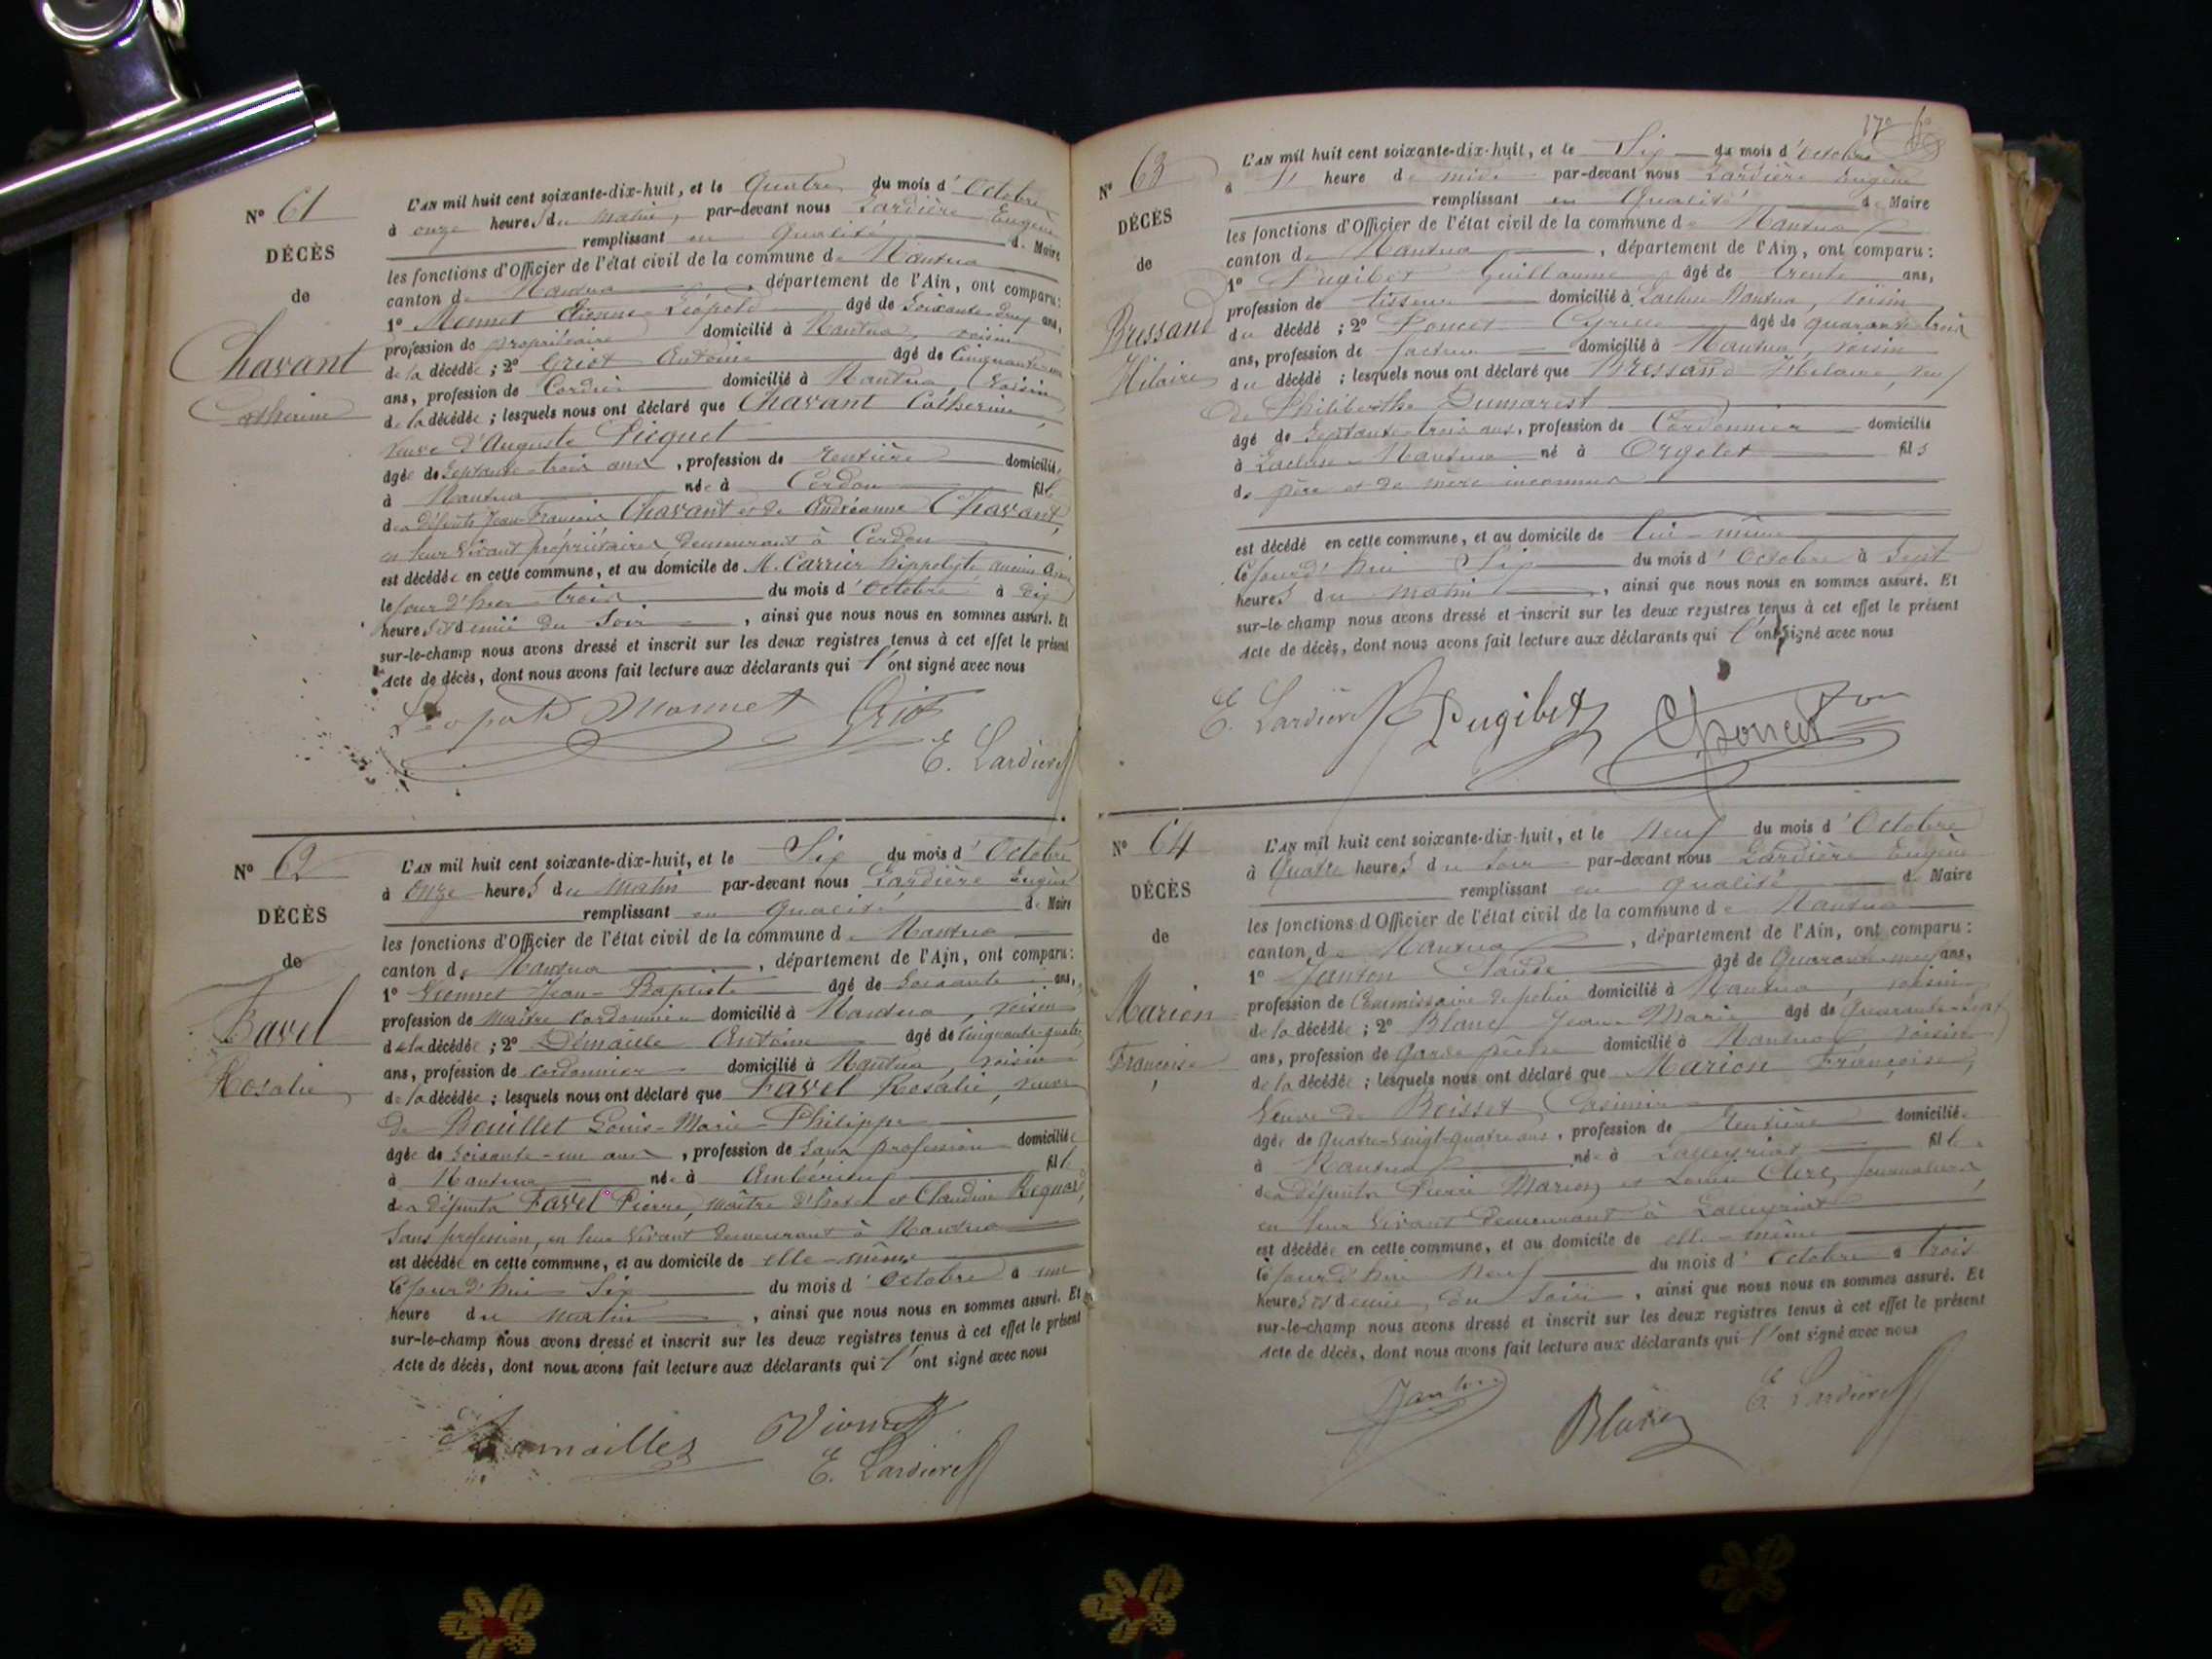 N° 61
DÉCÈS
de
Chavant
Catherine
L'AN mil huit cent soixante-dix-huit, et le Quatre du mois d'Octobre
à onze heures du matin, par-devant nous Lardière Eugène
remplissant en qualité de Maire
les fonctions d'Officier de l'état civil de la commune de Nantua
canton de Nantua, département de l'Ain, ont comparu:
1° Monnet Léopold âgé de soixante ans,
profession de propriétaire domicilié à Nantua, voisin
de la décédée; 2° Griot Antoine âgé de Cinquante
ans, profession de Cordier domicilié à Nantua, voisin
de la décédée; lesquels nous ont déclaré que Chavant Catherine,
veuve d'Auguste Picquet
âgée de septante-trois ans, profession de rentière domiciliée
à Nantua née à Cerdon fille
des défunts Jean-François Chavant et de Andréanne Chavant,
en leur vivant propriétaires demeurant à Cerdon
est décédée en cette commune, et au domicile de M. Carrier hippolyte
le jour d'hier trois du mois d'octobre à dix
heures et demie du soir, ainsi que nous nous en sommes assuré. Et
sur-le-champ nous avons dressé et inscrit sur les deux registres tenus à cet effet le présent
Acte de décès, dont nous avons fait lecture aux déclarants qui l'ont signé avec nous
Léopold Monnet Griot
E. Lardière
N° 62
DÉCÈS
de
Favel
Rosalie
L'AN mil huit cent soixante-dix-huit, et le Six du mois d'Octobre
à onze heures du matin par-devant nous Lardière Eugène
remplissant en qualité de Maire
les fonctions d'Officier de l'état civil de la commune de Nantua
canton de Nantua, département de l'Ain, ont comparu:
1° Vionnet Jean-Baptiste âgé de soixante ans,
profession de Maître cordonnier domicilié à Nantua, voisin
de la décédée; 2° Demaille Antoine âgé de cinquante-quatre
ans, profession de cordonnier domicilié à Nantua, voisin
de la décédée; lesquels nous ont déclaré que Favel Rosalie, veuve
de Bouillet Louis-Marie-Philippe
âgée de soixante-un ans, profession de sans profession domiciliée
à Nantua née à Ambérieu fille
des défunts Favel Pierre, maître d'hôtel et Claudine
sans profession, en leur vivant demeurant à Nantua
est décédée en cette commune, et au domicile de elle-même
le jourd'hui Six du mois d'octobre à une
heure du matin, ainsi que nous nous en sommes assuré. Et
sur-le-champ nous avons dressé et inscrit sur les deux registres tenus à cet effet le présent
Acte de décès, dont nous avons fait lecture aux déclarants qui l'ont signé avec nous
Demailles Vionnet
E. Lardière
N° 63
DÉCÈS
de
Bressand
Hilaire
L'AN mil huit cent soixante-dix-huit, et le Six du mois d'octobre
à 1 heure de midi par-devant nous Lardière Eugène
remplissant en Qualité de Maire
les fonctions d'Officier de l'état civil de la commune de Nantua
canton de Nantua, département de l'Ain, ont comparu:
1° Pugibet Guillaume âgé de trente ans,
profession de tisseur domicilié à Lacluse-Nantua, voisin
du décédé; 2° Poncet Cyrille âgé de quarante-trois
ans, profession de facteur domicilié à Nantua, voisin
du décédé; lesquels nous ont déclaré que Bressand Hilaire, veuf
de Philiberthe Dumarest
âgé de septante-trois ans, profession de Cordonnier domicilié
à Lacluse-Nantua né à Orgelet fils
de père et de mère inconnus
est décédé en cette commune, et au domicile de lui-même
le jourd'hui Six du mois d'Octobre à Sept
heures du matin, ainsi que nous nous en sommes assuré. Et
sur-le champ nous avons dressé et inscrit sur les deux registres tenus à cet effet le présent
Acte de décès, dont nous avons fait lecture aux déclarants qui l'ont signé avec nous
E. Lardière Pugibet Poncet
N° 64
DÉCÈS
de
Marion
Françoise
L'AN mil huit cent soixante-dix-huit, et le Neuf du mois d'Octobre
à Quatre heures du soir par-devant nous Lardière Eugène
remplissant en qualité de Maire
les fonctions d'Officier de l'état civil de la commune de Nantua
canton de Nantua, département de l'Ain, ont comparu:
1° Janton Claude âgé de Quarante-neuf ans,
profession de Commissaire de police domicilié à Nantua, voisin
de la décédée; 2° Blanc Jean Marie âgé de Quarante-sept
ans, profession de Garde pêche domicilié à Nantua, voisin
de la décédée; lesquels nous ont déclaré que Marion Françoise,
Veuve de Boisset Casimir
âgée de Quatre-vingt-quatre ans, profession de Rentière domiciliée
à Nantua née à Lalleyriat fille
des défunts Pierre Marion et Louise Clerc, journaliers
en leur vivant demeurant à Lalleyriat
est décédée en cette commune, et au domicile de elle-même
le jourd'hui Neuf du mois d'Octobre à trois
heures et demie, du soir, ainsi que nous nous en sommes assuré. Et
sur-le-champ nous avons dressé et inscrit sur les deux registres tenus à cet effet le présent
Acte de décès, dont nous avons fait lecture aux déclarants qui l'ont signé avec nous
Janton Blanc E. Lardière